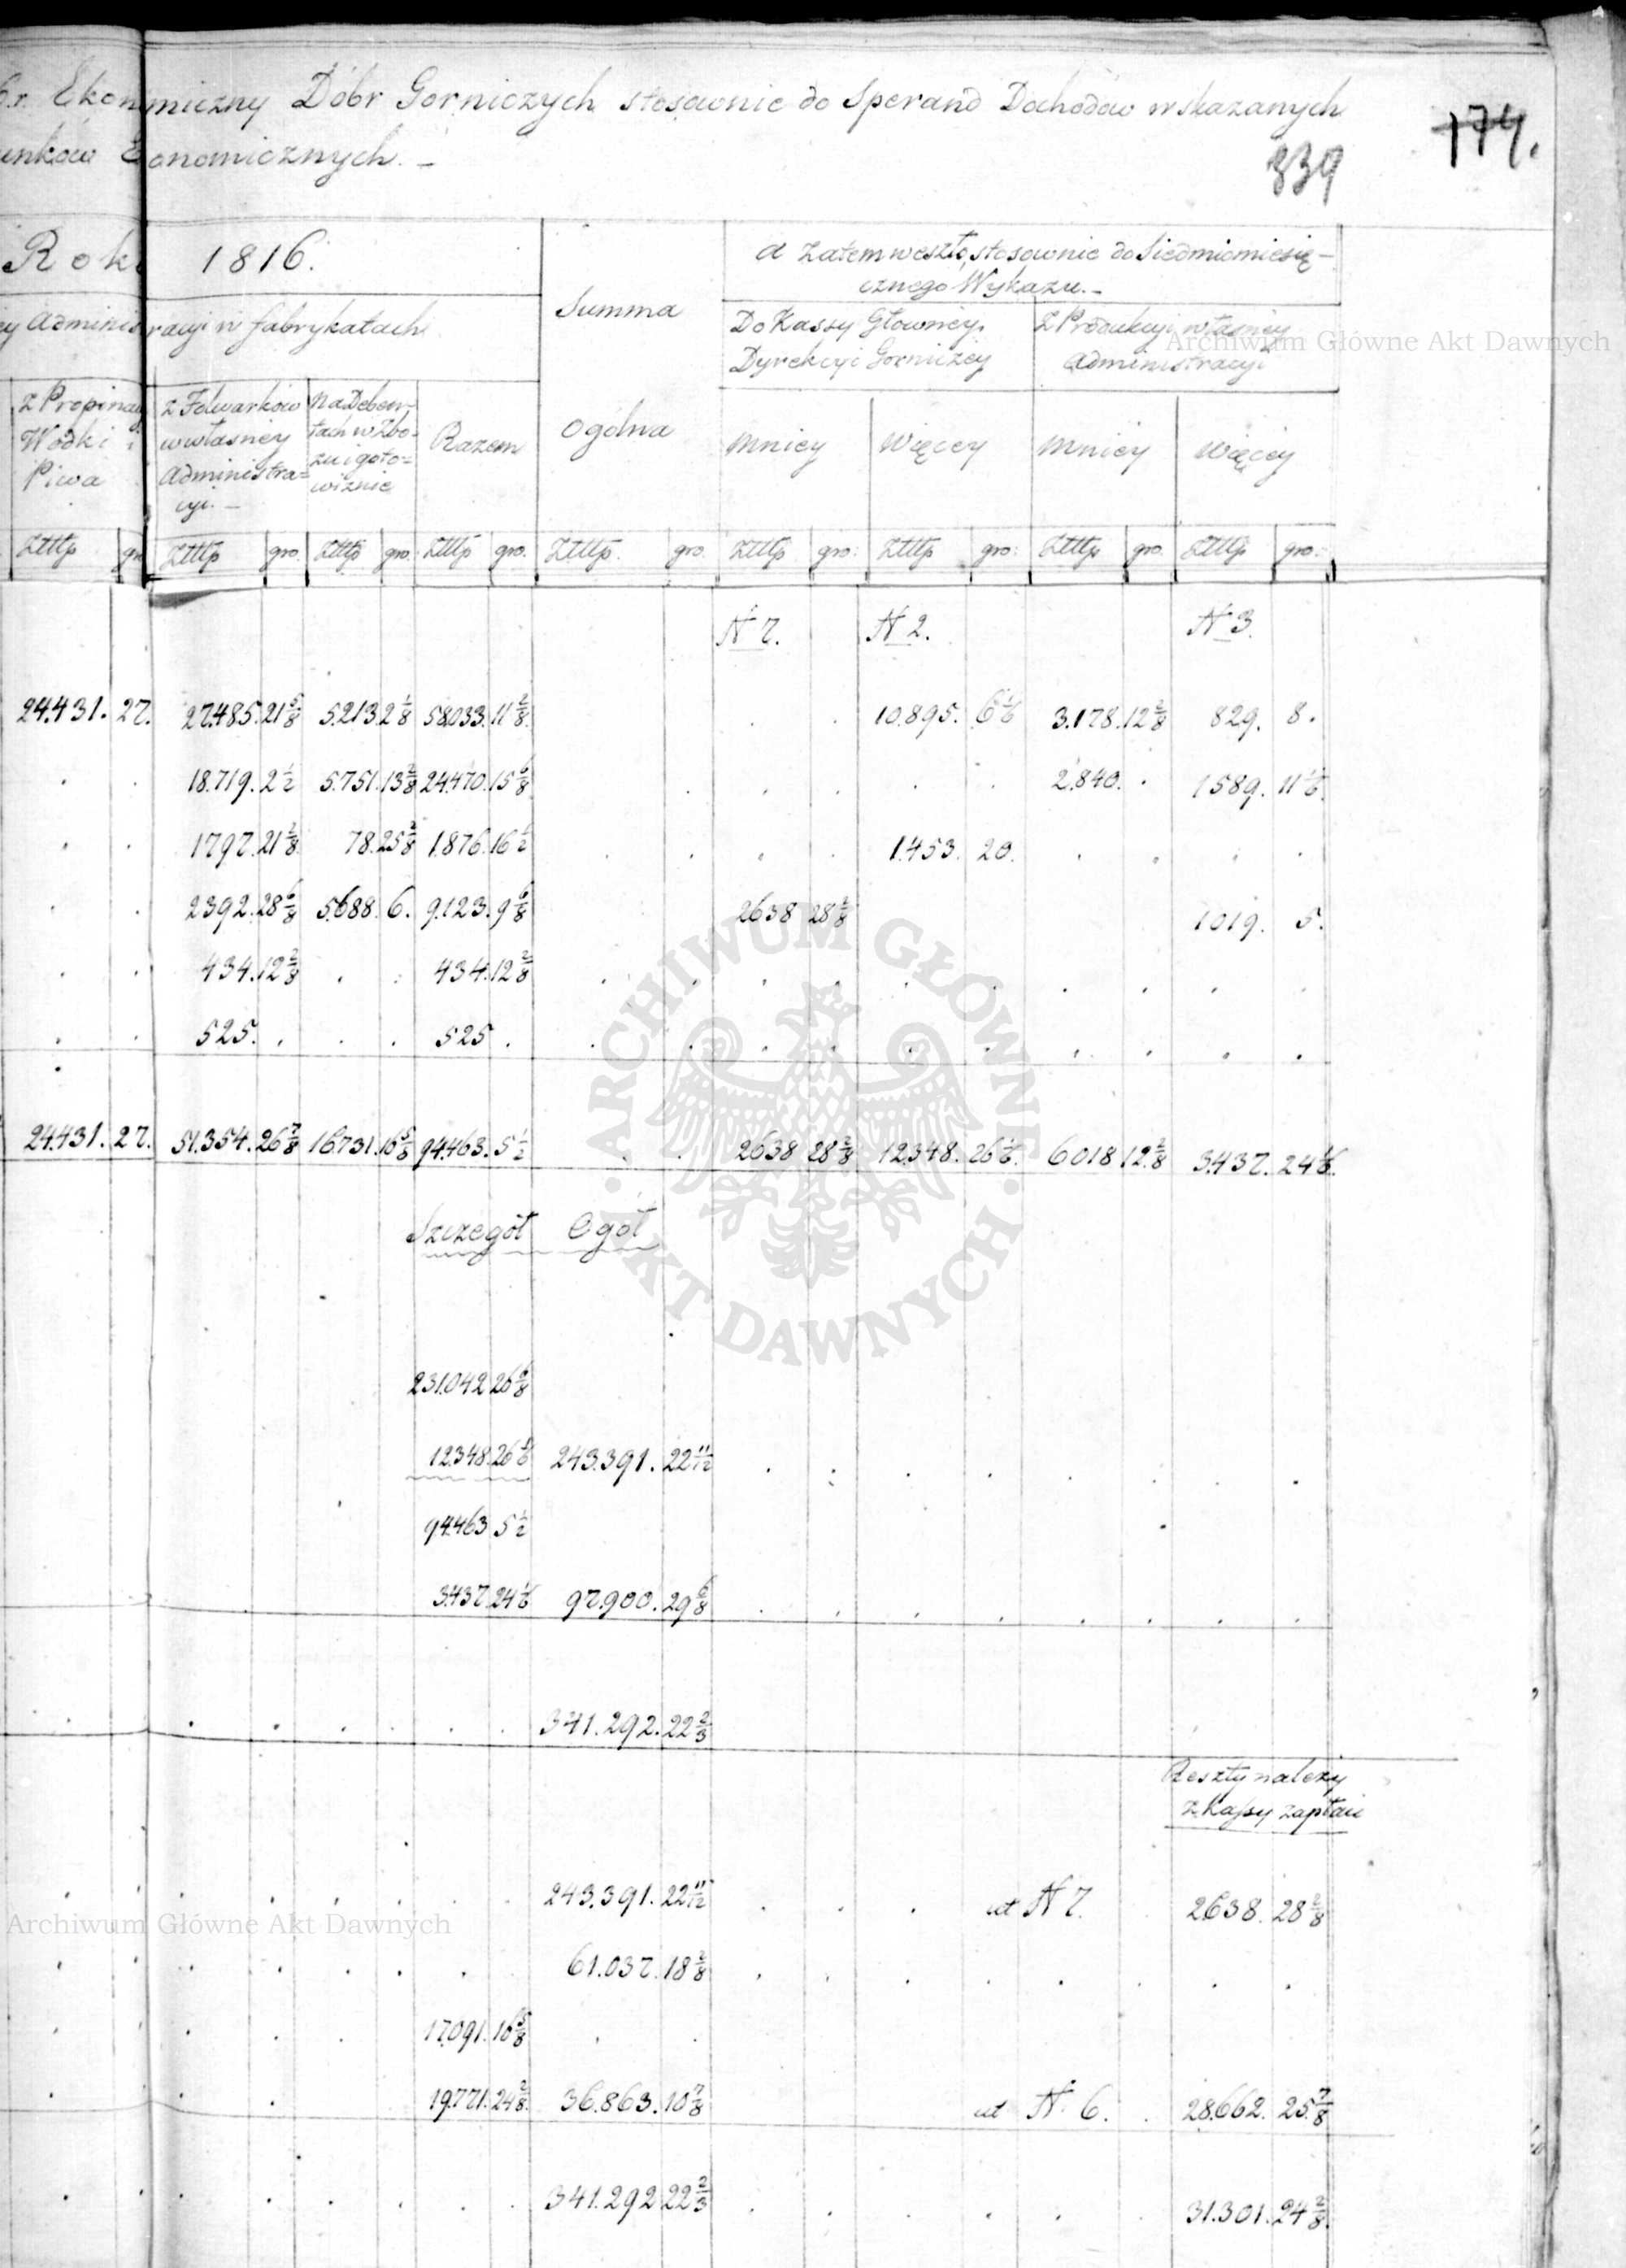 6.r. Ekonomiczny Dóbr Gorniczych stosownie do Sperand Dochodow wskazanych
unkow Economicznych. –
174.
839
Rok 1816.
Summa
Ogólna
a zatem weszło, stosownie do Siedmiomiesię-
cznego Wykazu. –
ey Administracyi w fabrykatach
Do Kassy Głowney
Dyrekcyi Gorniczey
Z Produkcyi własney
Administracyi
Z Propinacyi
Wodki i
Piwa
z Folwarków
w własney
Administra=
cyi. –
Na Deben-
tach w Zbo-
zu i goto=
wiznie
Razem
Mniey Więcey Mniey Więcey
Ztttp gro. Ztttp gro. Ztttp gro. Ztttp gro. Ztttp. gro. Ztttp gro: Ztttp gro: Ztttp gro. Ztttp gro:
N 7. N 2. N 3.
24.431. 27. 27.485. 21 5/8 5.213. 2 1/8 58.033. 11 2/8 . . 10.895. 6 1/6 3.178. 12 2/8 829. 8.
. . 18.719. 2 1/2 5.751. 13 2/8 24.470. 15 6/8 . . . . . 2.840. . 1589. 11 1/6.
. . 1797. 21 2/8 78. 25 2/8 1.876. 16 1/2 . . . . 1.453. 20. . . . .
. . 2392. 28 6/8 5.688. 6. 9.123. 9 6/8 2638 28 2/8 1019. 5.
. . 434. 12 2/8 . . 434. 12 2/8 . . . . . . . . . .
. . 525. . . . 525 . . . . . . . . . . .
24.431. 27. 51.354. 26 7/8 16.731. 16 5/8 94.463. 5 1/2 . . 2638 28 2/8 12.348. 26 1/6. 6018 12. 2/8 3.437. 24 1/6.
Szczegół Ogół
231.042 26 6/8
12.348. 26 1/6 243.391. 22 11/12 . . . . . . . .
94.463 5 1/2
3.437 24 1/6 97.900. 29 6/8 . . . . . . . .
. . . . . . . . 341.292. 22 2/3
Reszty nalezy
z Kassy zapłaic
. . . . . . . . 243.391. 22 11/12 . . . ut N 7. 2638. 28 2/8
. . . . . . . 61.037. 18 2/8 . . . . . . . .
. . . . . 17.091. 16 5/8 . .
. . . 19.771. 24 2/8. 36.863. 10 7/8 ut N. 6. . 28.662. 25. 7/8
. . . . . . . . 341.292 22 2/3 . . . . . . 31.301. 24 2/8.
Archiwum Główne Akt Dawnych
ARCHIWUM GŁÓWNE AKT DAWNYCH
Archiwum Główne Akt Dawnych